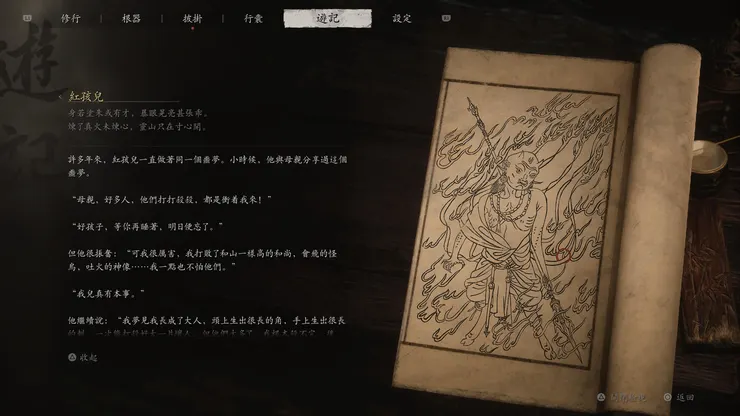 L2
修行
根器
披掛
行囊
遊記
設定
R2
遊記
紅孩兒
煉了真火未煉心，靈山只在寸心間。
許多年來，紅孩兒一直做著同一個噩夢。小時候，他與母親分享過這個
噩夢。
“母親，好多人，他們打打殺殺，都是衝着我來！”
“好孩子，等你再睡著，明日便忘了。”
但他很振奮：“可我很厲害，我打敗了和山一樣高的和尚，會飛的怪
鳥，吐火的神像……我一點也不怕他們。”
“我兒真有本事。”
他繼續說：“我夢見我長成了大人，頭上生出很長的角，手上生出很長
收起
返回